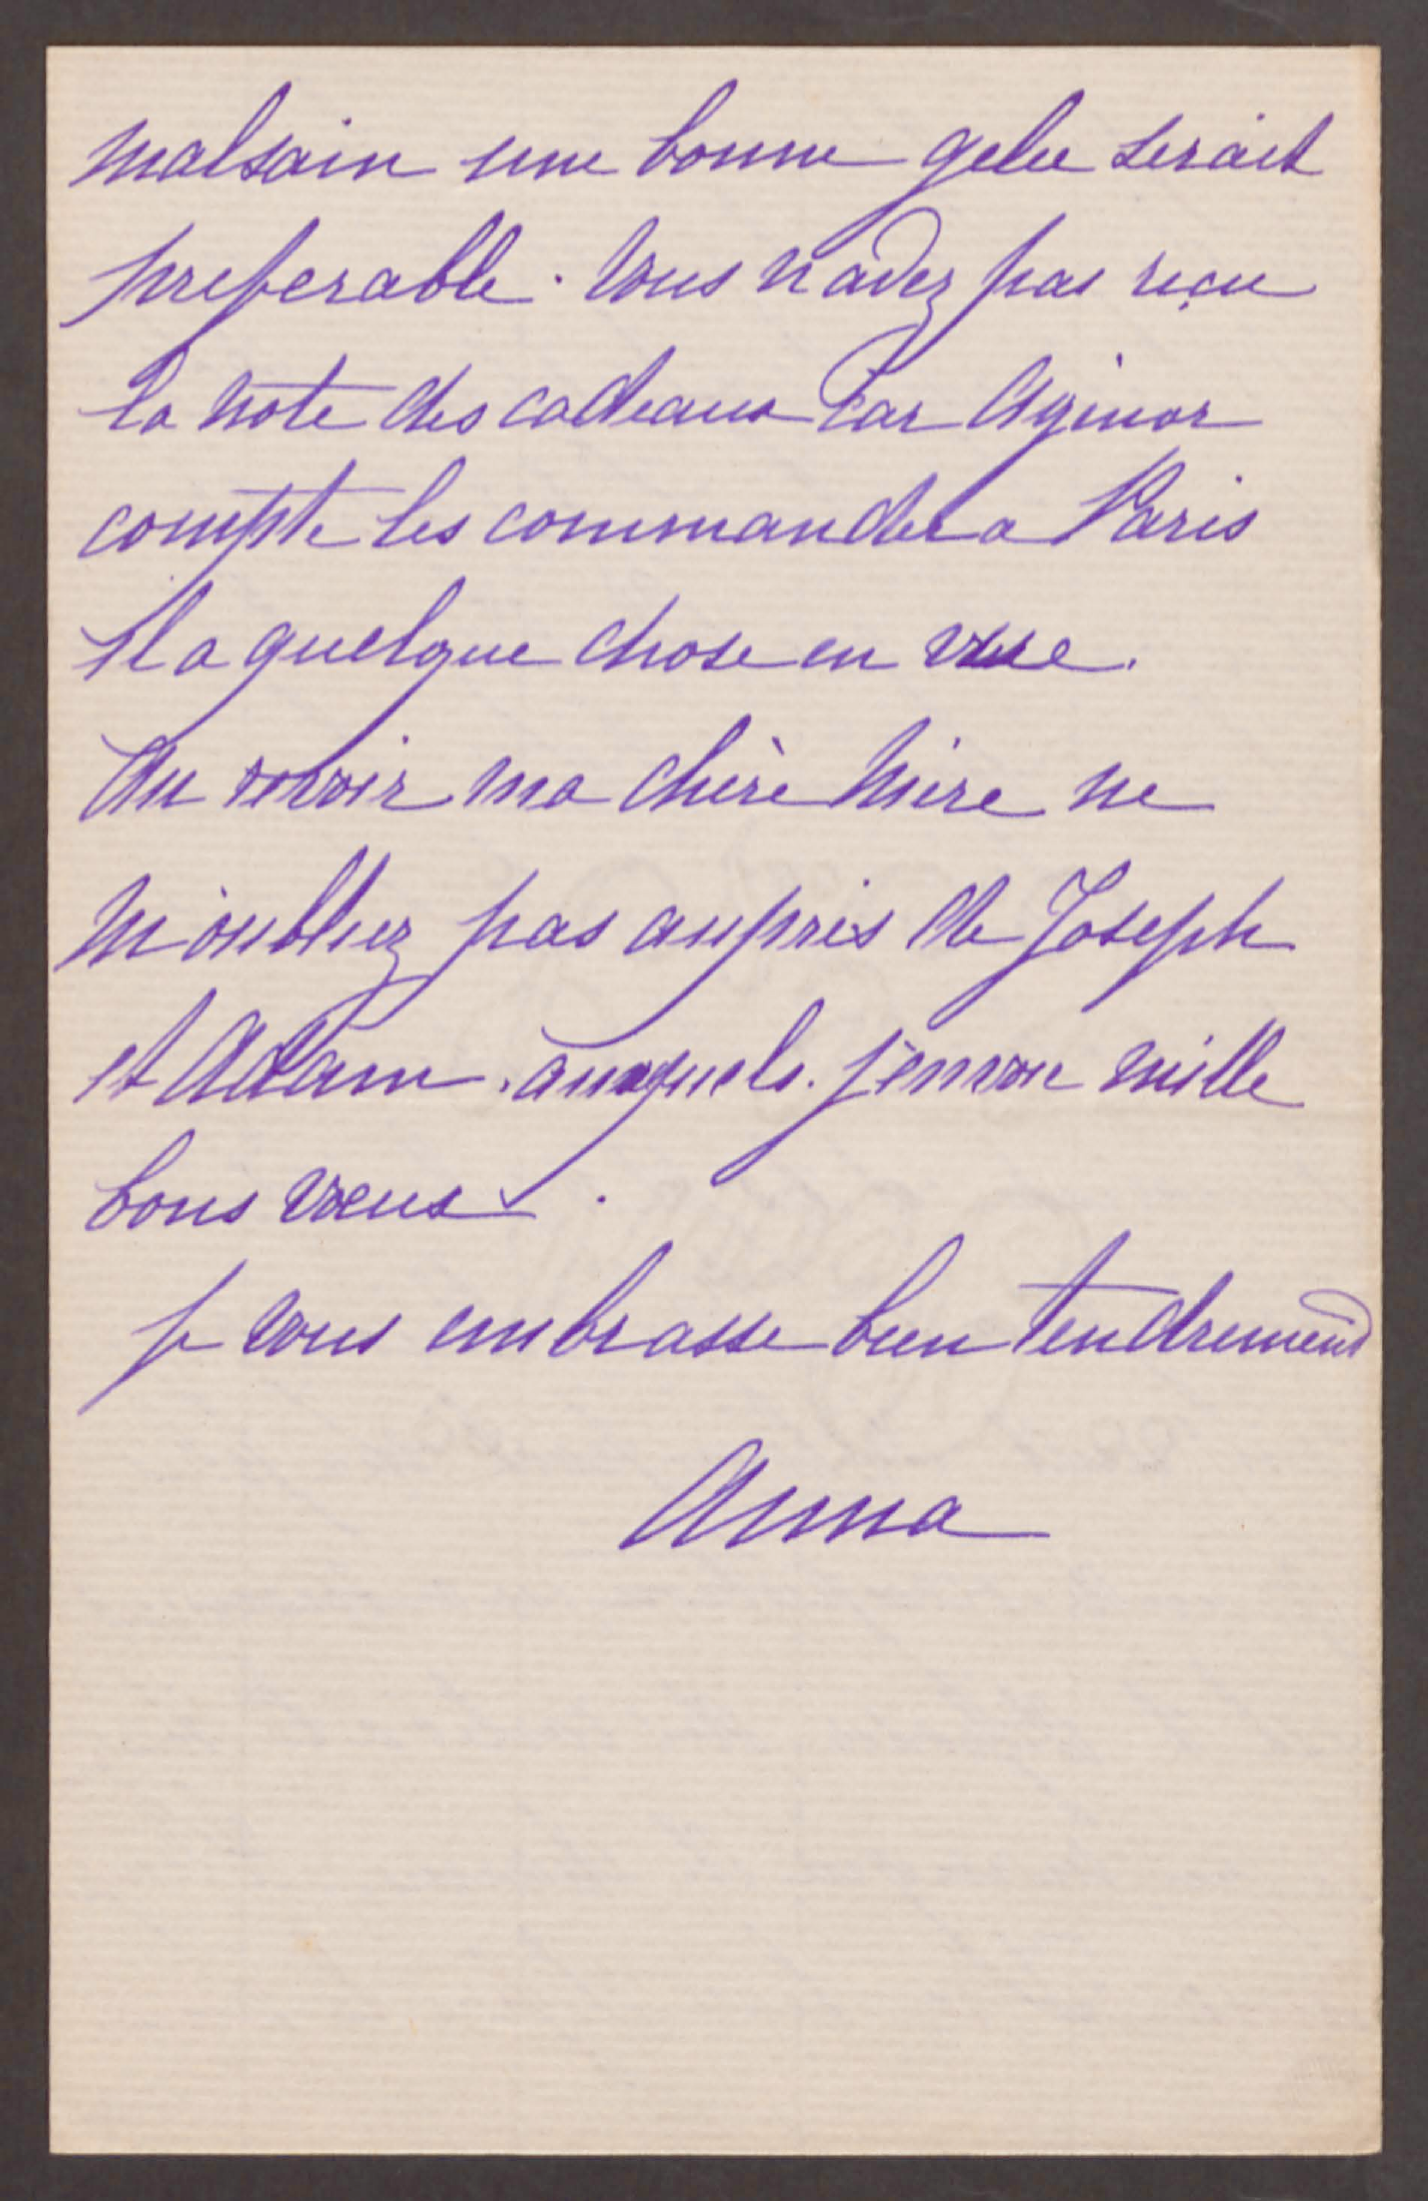 malsain une bonne gelee serait
preferable. Vous n'avez pas reçu
la note des cadeaux car Agenor
compte les commander a Paris
il a quelque chose en vue.
Au revoir ma chère Mère ne
m'oubliez pas auprès de Joseph
et Adam. auxquels. j'envoie mille
bons vœux.
Je vous embrasse bien tendrement
Anna